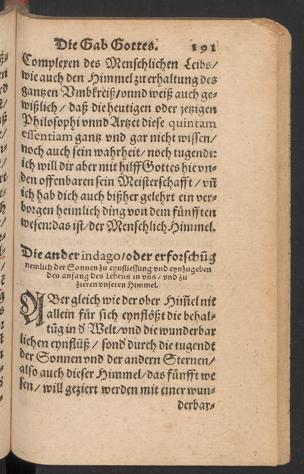 Die Gab Gottes. 191
Complexen des Menschlichen Leibs/
wie auch den Himmel zu erhaltung des
gantzen Vmbkreiß/vnnd weiß auch ge-
wißlich / daß die heutigen oder jetzigen
Philosophi vnnd Artzet diese quintam
essentiam gantz vnd gar nicht wissen/
noch auch sein wahrheit / noch tugendt:
ich will dir aber mit hilff Gottes hie vn-
den offenbaren sein Meisterschafft / vñ
ich hab dich auch bißher gelehrt ein ver-
borgen heimlich ding von dem fünfften
wesen: das ist / der Menschlich Himmel.
Die ander indago/oder erforschũg
nemlich der Sonnen zu eynfliessung vnd eynzugeben
den anfang des Lebens in vns / vnd zu
zieren vnseren Himmel.
ABer gleich wie der ober Him̃el nit
allein für sich eynflößt die behal-
tũg in d' Welt/vnd die wunderbar
lichen eynflüß / sond' durch die tugendt
der Sonnen vnd der andern Sternen/
also auch dieser Himmel / das fünfft we
sen / will geziert werden mit einer wun-
derbar-